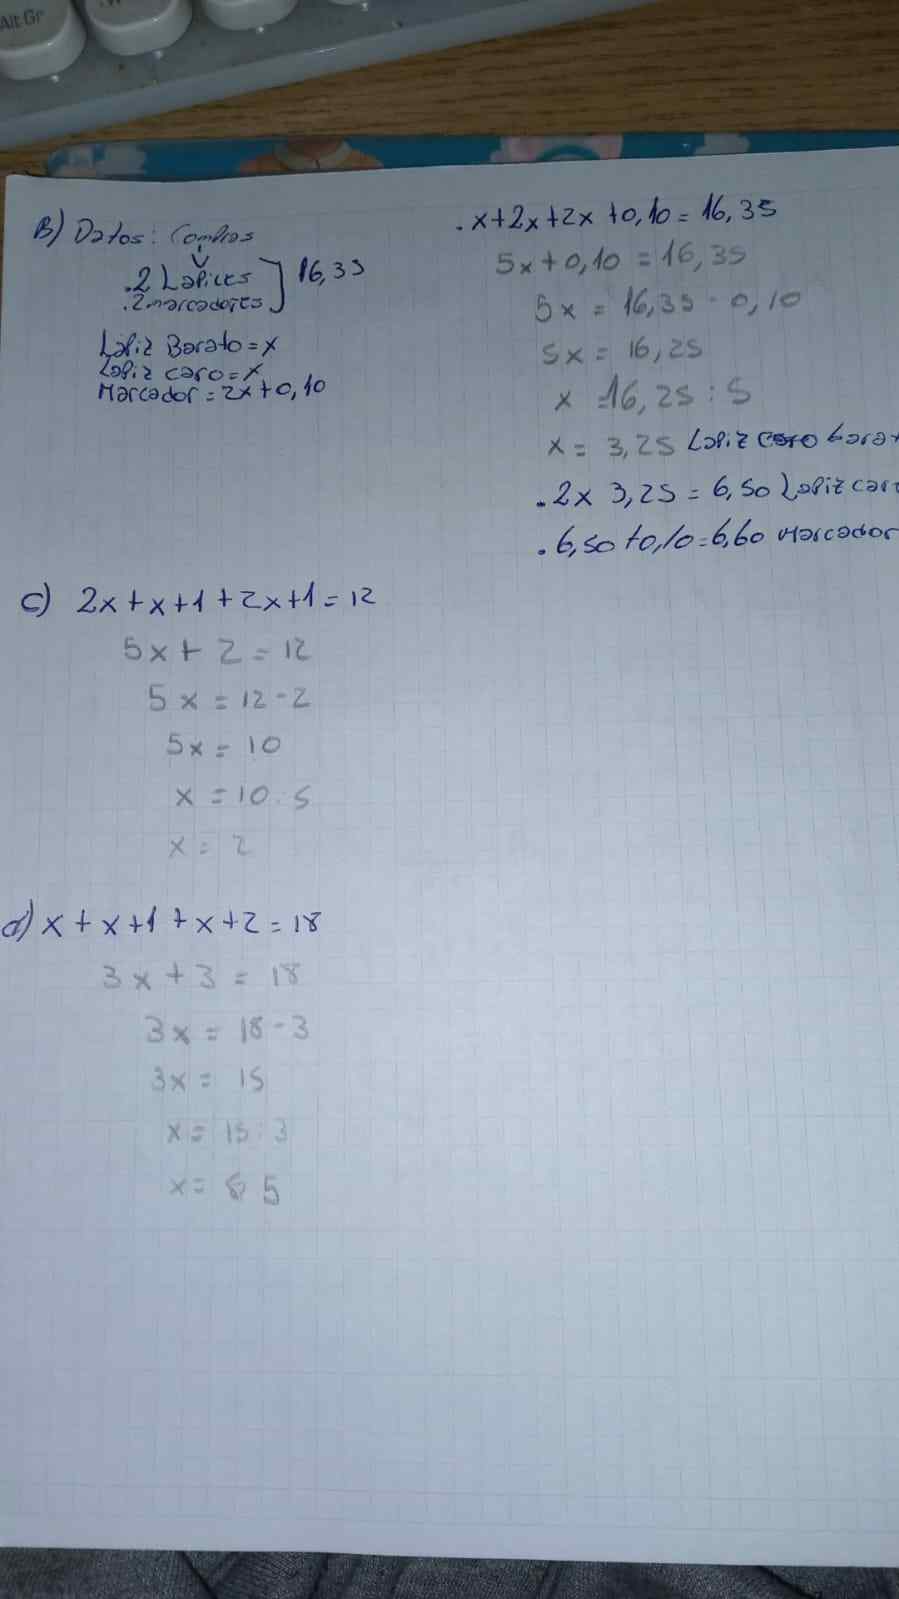 Alt Gr
B) Datos: Compras
.2 Lapices
.2 marcadores
16,35
Lápiz Barato = x
Lapiz caro = x
Marcador = 2x + 0,10
. x + 2x + 2x + 0,10 = 16,35
5x + 0,10 = 16,35
5x = 16,35 - 0,10
5x = 16,25
x = 16,25 : 5
x = 3,25 Lapiz barat
. 2 x 3,25 = 6,50 Lapiz car
. 6,50 + 0,10 = 6,60 Marcador
c) 2x + x + 1 + 2x + 1 = 12
5x + 2 = 12
5x = 12 - 2
5x = 10
x = 10 : 5
x = 2
d) x + x + 1 + x + 2 = 18
3x + 3 = 18
3x = 18 - 3
3x = 15
x = 15 : 3
x = 5